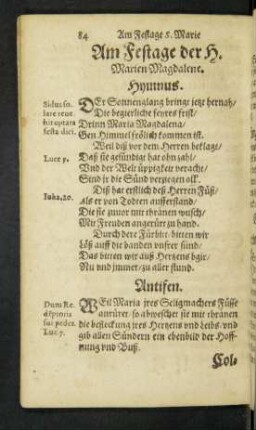 84 Am Festage s. Marie
Am Festage der H.
Marien Magdalene.
Hymnus.
DEr Sonnenglantz bringt jetz hernah/
Die begierliche feyres frist/
Drinn Maria Magdalena/
Gen Himmel frölich kommen ist.
Weil diß vor dem Herren beklagt/
Daß sie gesündigt hat ohn zahl/
Vnd der Welt üppigkeit veracht/
Sind jr die Sünd verzigen all.
Diß hat erstlich deß Herren Füß/
als er von Todten aufferstand/
Die sie zuvor mit thränen wusch/
Mit Frewden angerürt zu hand.
Durch dere Fürbitt/ bitten wir
Löß auff die banden vnsrer sünd/
Das bitten wir auß Hertzens bgir/
Nu vnd jmmer/ zu aller stund.
Luce 7.
Antifen.
WEil Maria jres Seligmachers Füsse
anrüret/ so abweschet sie mit thränen
die befleckung jres Hertzens vnd Leibs/ vnd
gib allen Sündern ein ebenbild der Hoff-
nung vnd Buß.
Luc 7.
Col-